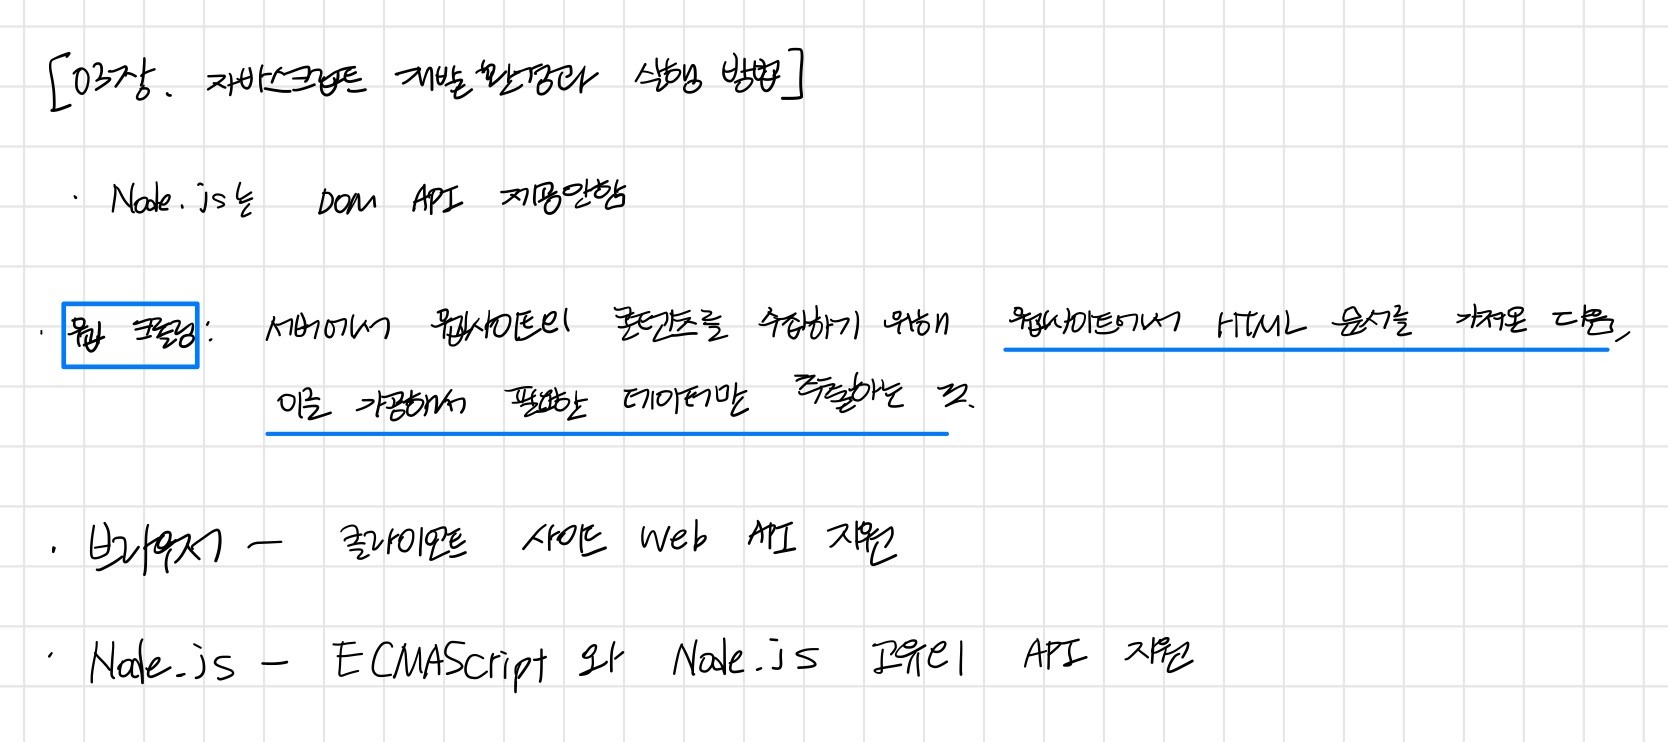 [03장. 자바스크립트 개발 환경과 실행 방법]
· Node.js는 DOM API 제공안함
· 웹 크롤링 : 서버에서 웹사이트의 콘텐츠를 수집하기 위해 웹사이트에서 HTML 문서를 가져온 다음,
이를 가공해서 필요한 데이터만 추출하는 것.
· 브라우저 - 클라이언트 사이드 Web API 지원
· Node.js - ECMAScript 와 Node.js 고유의 API 지원